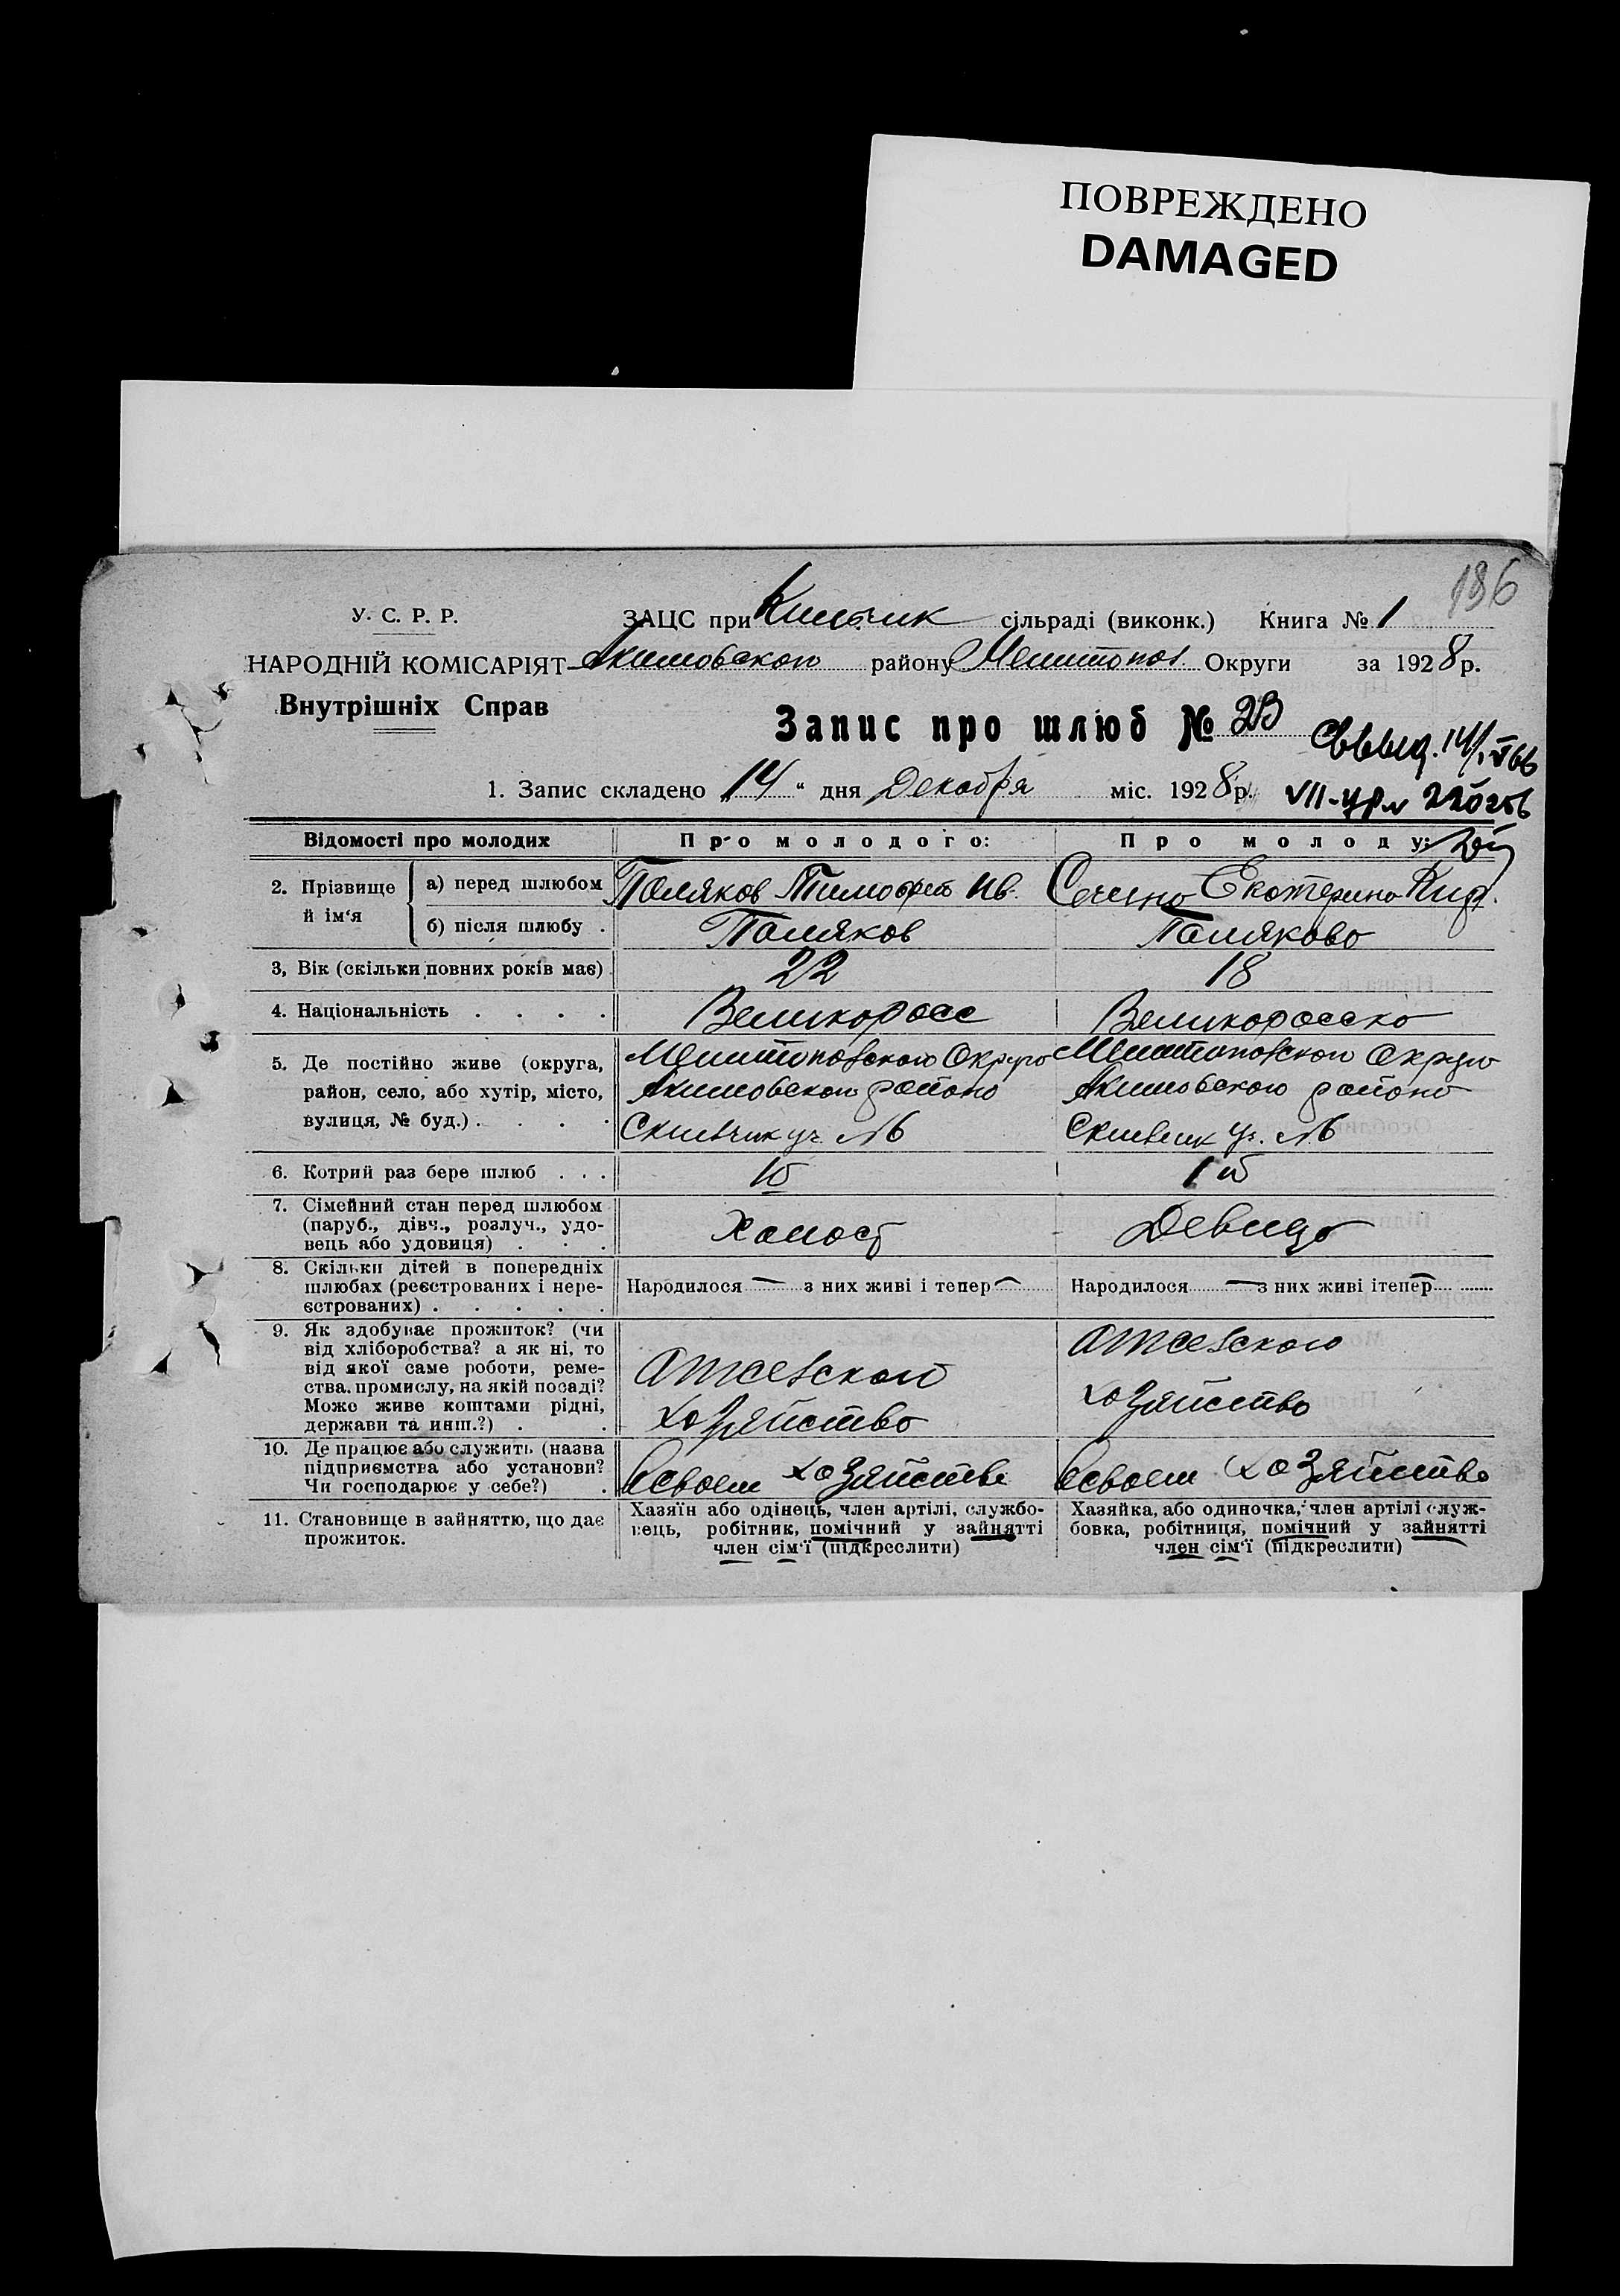 ПОВРЕЖДЕНО
DAMAGED
186
У. С. Р. Р.
ЗАЦС при сільраді (виконк.) Книга № 1
НАРОДНІЙ КОМІСАРІЯТ Акимовского району Мелитопол. Округи за 1928 р.
Внутрішніх Справ
Запис про шлюб №
1. Запис складено „14“ дня Декабря міс. 1928 р.
Відомості про молодих
Про молодого:
Про молоду:
2. Прізвище й ім‘я
а) перед шлюбом
Поляков Тимофей Ив.
Екатерина
б) після шлюбу .
Поляков
Полякова
3, Вік (скільки повних років має)
22
18
4. Національність . . . .
Великоросс
Великоросска
5. Де постійно живе (округа,
район, село, або хутір, місто,
вулиця, № буд.) . . . .
Мелитопольского Округа
Акимовского района
уч. №6
Мелитопольского Округа
Акимовского района
уч. №6
6. Котрий раз бере шлюб . . .
1й
1й
7. Сімейний стан перед шлюбом
(паруб., дівч., розлуч., удо-
вець або удовиця) . . .
Холост
Девица
8. Скільки дітей в попередніх
шлюбах (реєстрованих і нере-
єстрованих) . . . . .
Народилося — з них живі і тепер —
Народилося — з них живі і тепер —
9. Як здобуває прожиток? (чи
від хліборобства? а як ні, то
від якої саме роботи, реме-
ства, промислу, на якій посаді?
Може живе коштами рідні,
держави та инш.?) . .
От сельского
хозяйства
От сельского
хозяйства
10. Де працює або служить (назва
підприємства або установи?
Чи господарює у себе?) .
В своем хозяйстве
В своем хозяйстве
11. Становище в зайняттю, що дає
прожиток.
Хазяїн або одінець, член артілі, службо-
вець, робітник, помічний у зайнятті
член сім‘ї (підкреслити)
Хазяйка, або одиночка, член артілі служ-
бовка, робітниця, помічний у зайнятті
член сім‘ї (підкреслити)